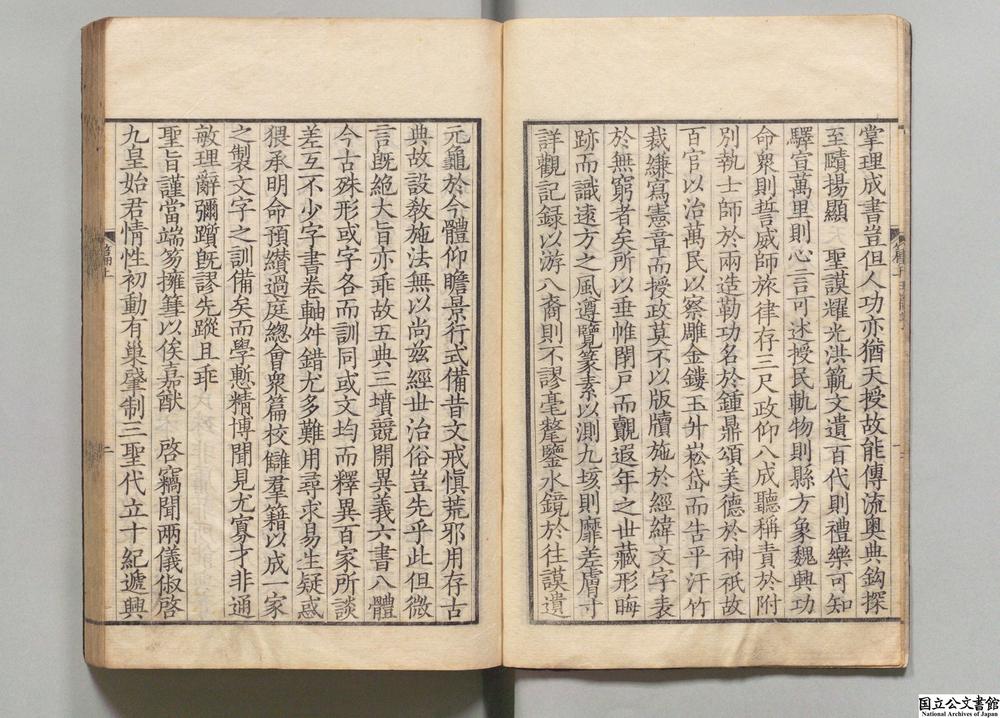 掌理成書豈但人功亦猶天授故能傳流奧典鈎探
至賾揚顯　聖謨耀光洪範文遺百代則禮樂可知
驛宣萬里則心言可述授民軌物則縣方象魏興功
命衆則誓威師旅律存三尺政仰八成聽稱責於附
別執士師於兩造勒功名於鍾鼎頌美德於神祇故
百官以治萬民以察雕金鏤玉升崧岱而告平汗竹
裁縑寫憲章而授政莫不以版牘施於經緯文字表
於無窮者矣所以垂帷閉戸而覿遐年之世藏形晦
跡而識遠方之風遵覽篆素以測九垓則靡差膚寸
詳觀記録以游八裔則不謬毫氂鑒水鏡於往謨遺
元龜於今體仰瞻景行式備昔文戒愼荒邪用存古
典故設敎施法無以尚兹經世治俗豈先乎此但微
言旣絶大旨亦乖故五典三墳競開異義六書八體
今古殊形或字各而訓同或文均而釋異百家所談
差互不少字書卷軸舛錯尤多難用尋求易生疑惑
猥承明命預纘過庭總會衆篇校讎羣籍以成一家
之製文字之訓備矣而學慙精博聞見尤寡才非通
敏理辭彌躓旣謬先蹤且乖
聖旨謹當端笏擁篲以俟嘉猷　啓竊聞兩儀俶啓
九皇始君情性初動有巢肇制三聖代立十紀遞興
二
国立公文書館
National Archives of Japan